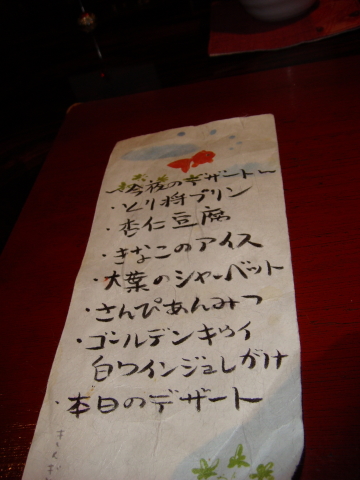 ~今夜のデザート~
・とり将プリン
・杏仁豆腐
・きなこのアイス
・大葉のシャーベット
・さんぴあんみつ
・ゴールデンキウイ
白ワインジュレがけ
・本日のデザート